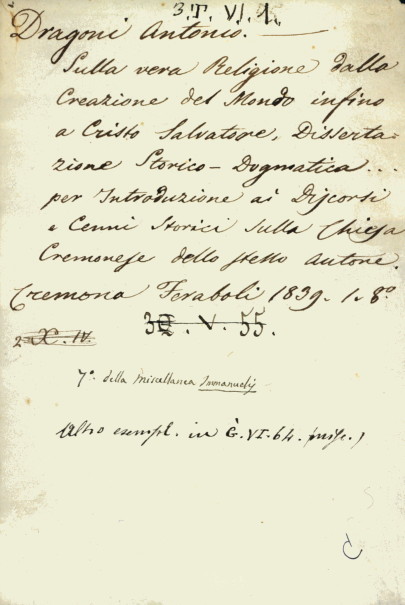 3.T.VI.1.
Dragoni Antonio.
Sulla vera Religione dalla
Creazione del Mondo infino
a Cristo Salvatore, Disserta=
zione Storico-Dogmatica...
per Introduzione ai Discorsi
e Cenni Storici sulla Chiesa
Cremonese dello stesso Autore.
Cremona Feraboli 1839. 1. 8º
V. 55.
2 X. IV.
7ª. della miscellanea
Altro esempl. in G.VI.64. (misc.)